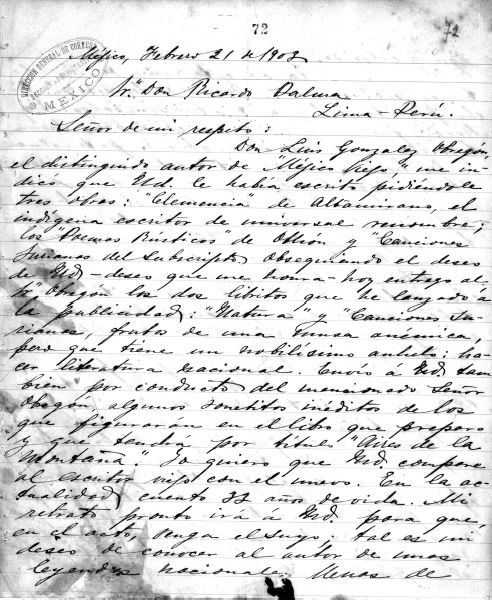 72
72
DIRECCION GENERAL DE CORREOS
MEXICO
Méjico, Febrero 21 de 1903
Sr. Don Ricardo Palma
Lima-Perú.
Señor de mi respeto:
Don Luis Gonzalez Obregón,
el distinguido autor de "Méjico Viejo," me in-
dicó que Ud. le había escrito pidiéndole
tres obras: "Clemencia" de Altamirano, el
indígena escritor de universal renombre;
los "Poemas Rústicos" de Othón y "Canciones
Surianas del Subscripto. Obsequiando el deseo
de Ud - deseo que me honra - hoy entrego al
Sr Obregón los dos libritos que he lanzado á
la publicidad: "Natura" y "Canciones Su-
rianas, frutos de una musa anémica,
pero que tiene un nobilísimo anhelo: ha-
cer literatura nacional. Envío á Ud tam
bién por conducto del mencionado Señor
Obregón algunos sonetitos inéditos de los
que figurarán en el libro que preparo
y que tendrá por título "Aires de la
Montaña" Yo quiero que Ud. compare
al escritor viejo con el nuevo. En la ac-
tualidad cuento 33 años de vida. Mi
retrato pronto irá á Ud. para que,
en el acto, venga el suyo: tal es mi
deseo de conocer al autor de unas
leyendas nacionales. Menos de
72